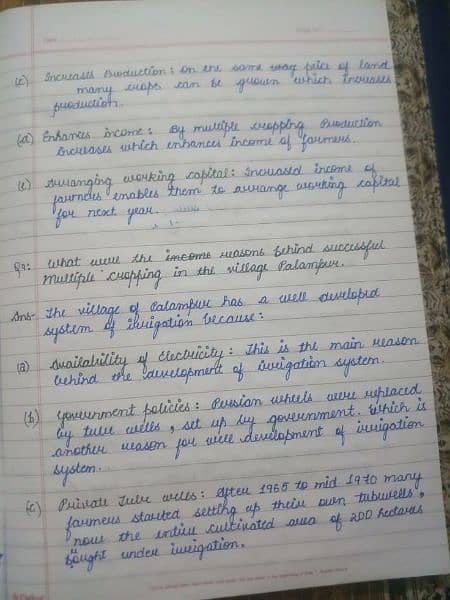 (c) Increases Production: On the same way piece of land
many crops can be grown which increases
production.
(d) Enhances income: By multiple cropping Production
increases which enhances income of farmers.
(e) Arranging working capital: Increased income of
farmers enables them to arrange working capital
for next year.
Q7: What were the income reasons behind successful
multiple cropping in the village Palampur.
Ans- The village of Palampur has a well developed
system of irrigation because:
(a) Availability of Electricity: This is the main reason
behind the development of irrigation system.
(b) Government policies: Persian wheels were replaced
by tube wells, set up by government. Which is
another reason for well development of irrigation
system.
(c) Private Tube wells: After 1965 to mid 1970 many
farmers started setting up their own tubwells,
now the entire cultivated area of 200 hectares
bought under irrigation.